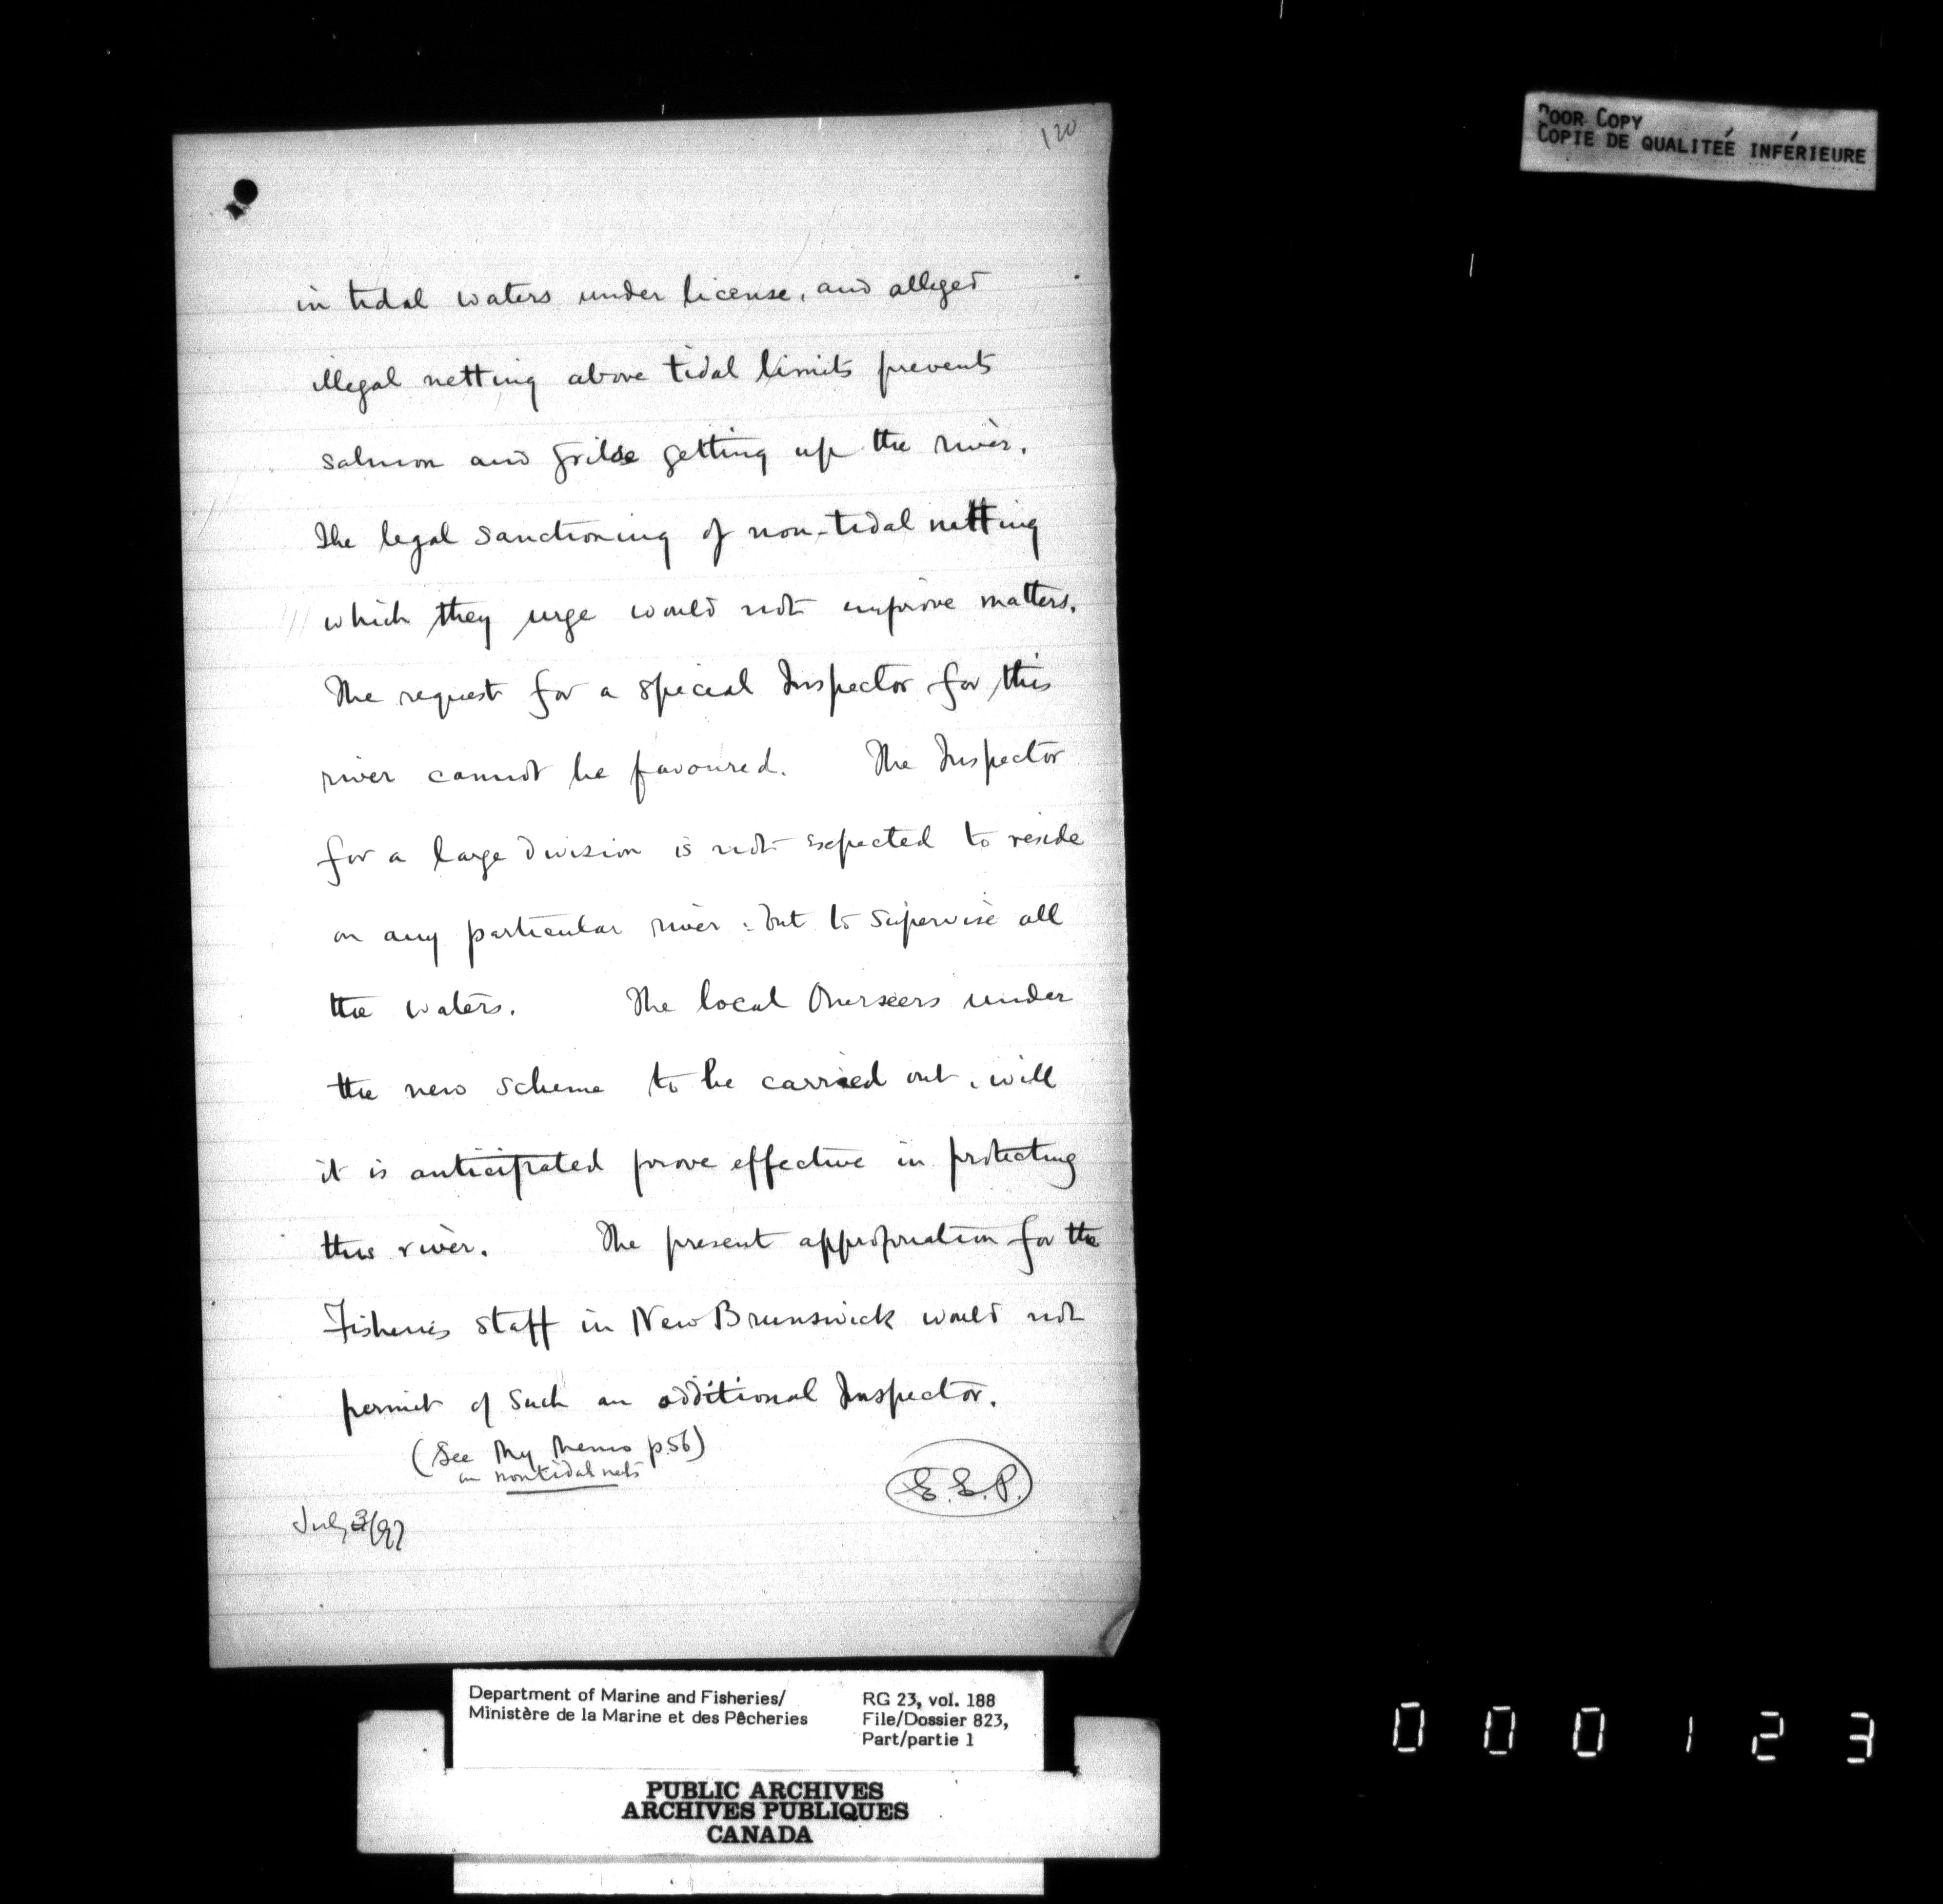 120
POOR COPY
COPIE DE QUALITEÉ INFÉRIEURE
in tidal waters under license, and alleged
illegal netting above tidal limits prevents
salmon and grilse getting up the river.
The legal sanctioning of non-tidal netting
which they urge would not improve matters.
The request for a special Inspector for this
river cannot be favoured. The Inspector
for a large division is not expected to reside
on any particular river: but to supervise all
the waters. The local Overseers under
the new scheme to be carried out, will
it is anticipated prove effective in protecting
this river. The present appropriation for the
Fisheries staff in New Brunswick would not
permit of such an additional Inspector.
(See My Memo p.56)
on nontidal nets
E.E.P.
July 3/97
Department of Marine and Fisheries/
Ministère de la Marine et des Pêcheries
RG 23, vol. 188
File/Dossier 823,
Part/partie 1
PUBLIC ARCHIVES
ARCHIVES PUBLIQUES
CANADA
000123